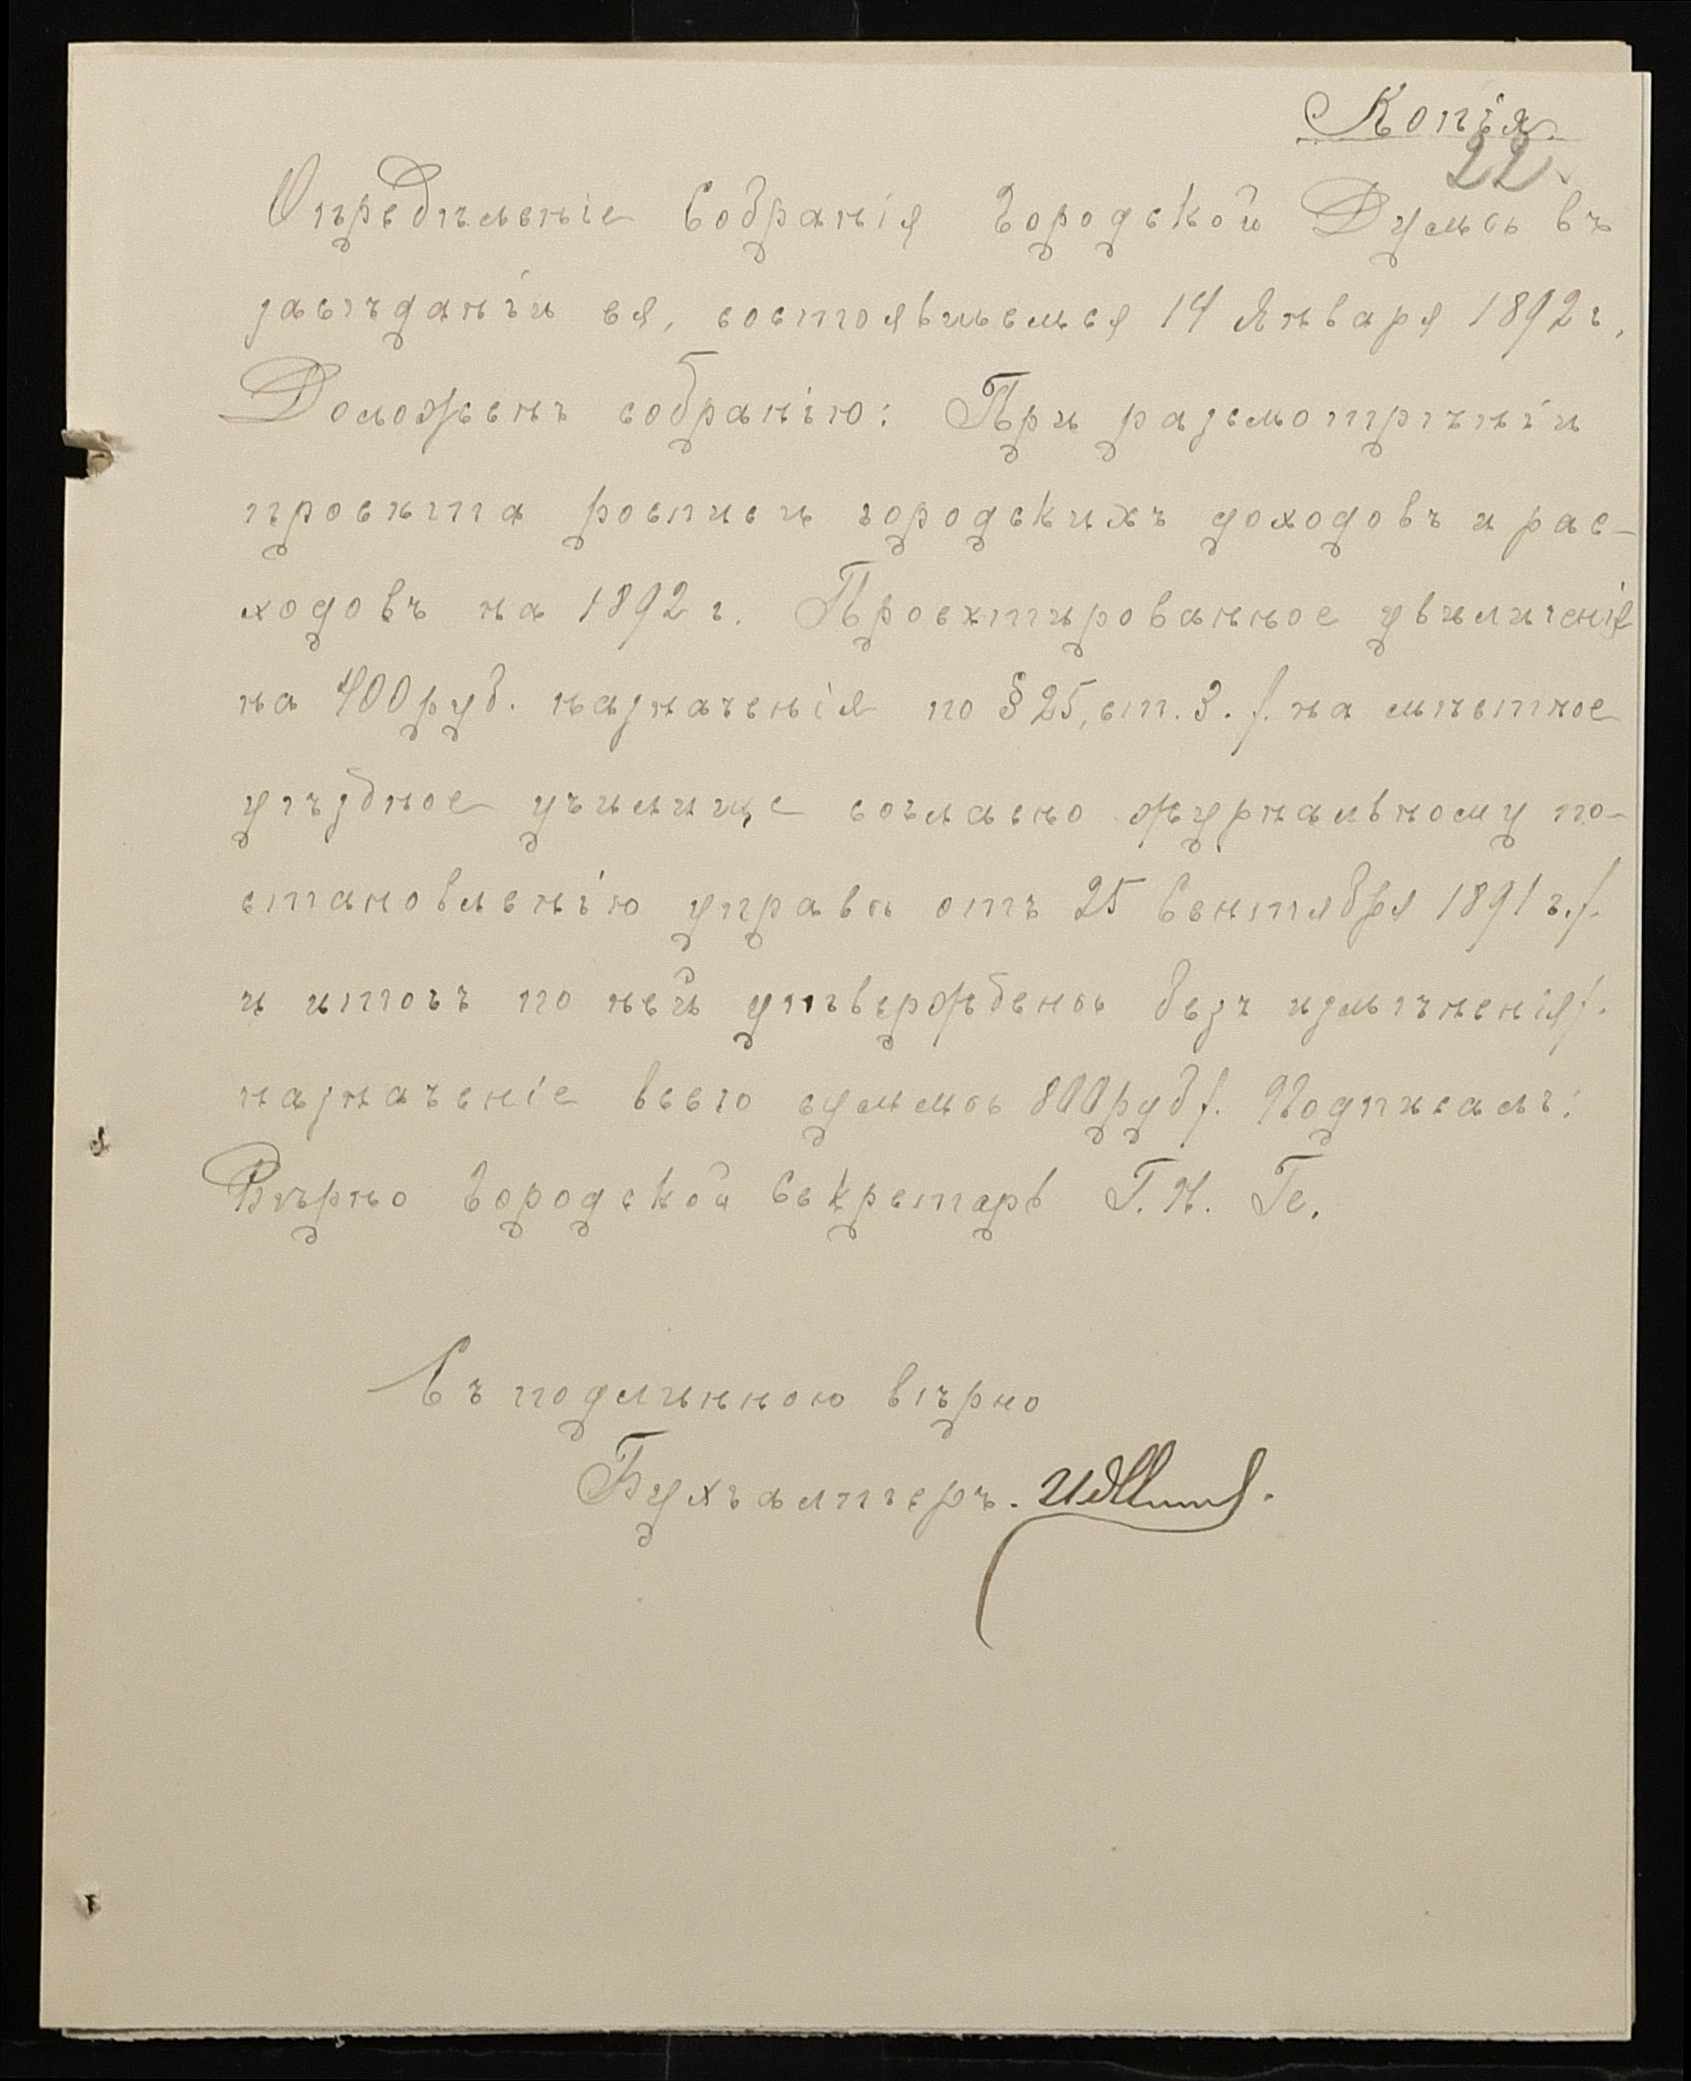 Копія.
22.
Опредѣленіе Собранія Городской Думы въ
засѣданіи ея, состоявшемся 14 Января 1892 г.
Доложенъ собранію: При разсмотрѣніи
проекта росписи городскихъ доходовъ и рас-
ходовъ на 1892 г. Проектированное увеличеніе
на 400 руб. назначенія по § 25, ст. 3. /. на мѣстное
уѣздное училище согласно журнальному по-
становленію управы отъ 25 Сентября 1891 г. /.
и итогъ по ней утверждены безъ измѣненія /.
назначеніе всего суммы 800 руб /. Подписалъ:
Вѣрно Городской Секретарь Г. Н. Ге.
Съ подлинною вѣрно
Бухгалтеръ.